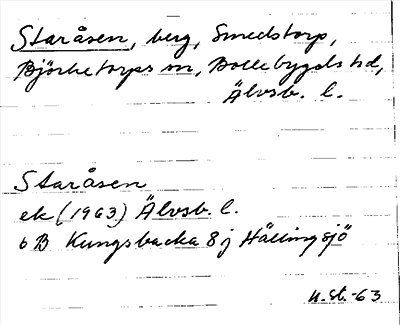 Staråsen, berg, Smedstorp,
Björketorps sn, Bollebygds hd,
Älvsb. l.
Staråsen
ek (1963) Älvsb. l.
6B Kungsbacka 8j Hällingsjö
U.St.-63